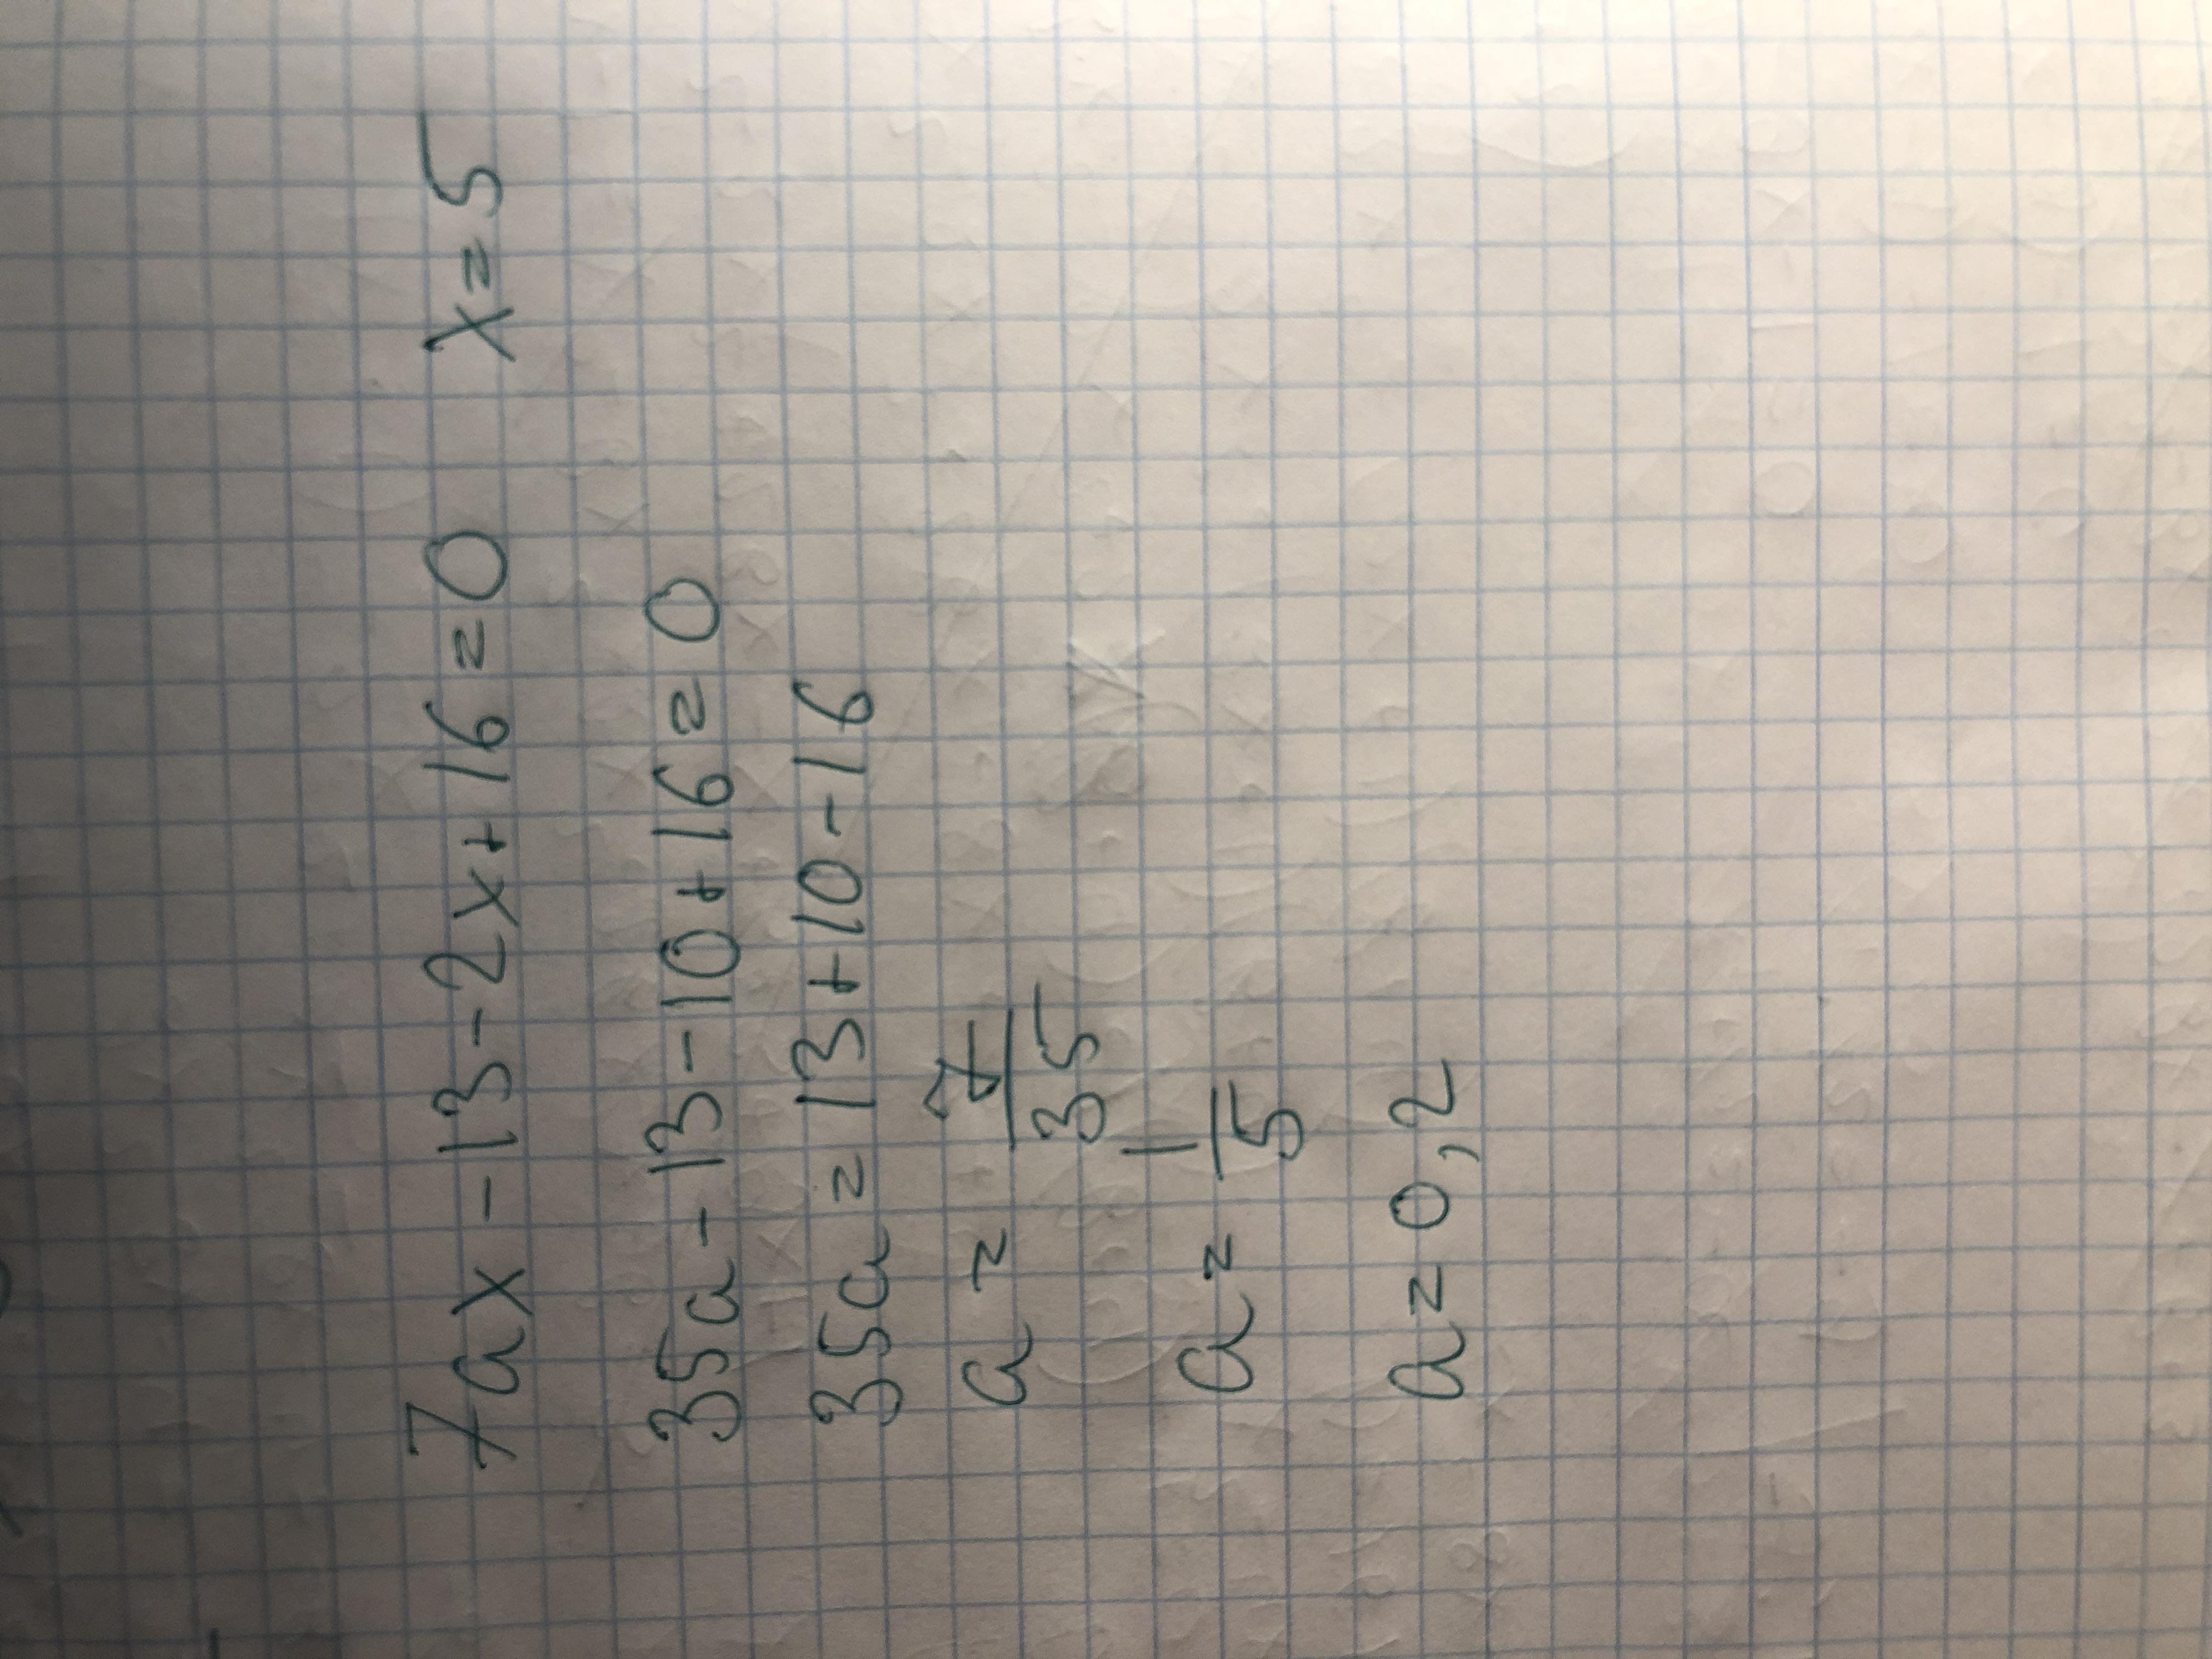 7ax - 13 - 2x + 16 = 0 x = 5
35a - 13 - 10 + 16 = 0
35a = 13 + 10 - 16
a = 7/35
a = 1/5
a = 0,2